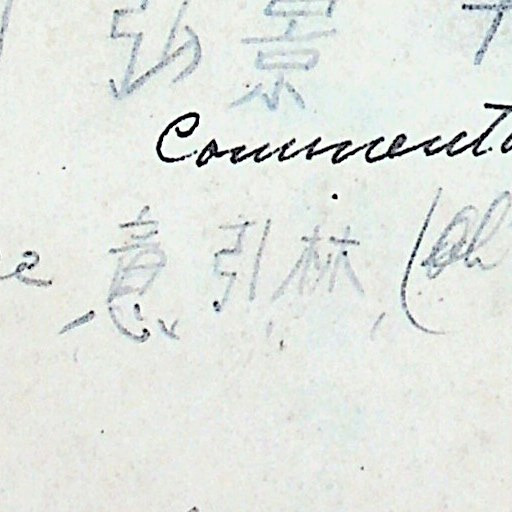 弘景
Comment
e 意引林 (Oh